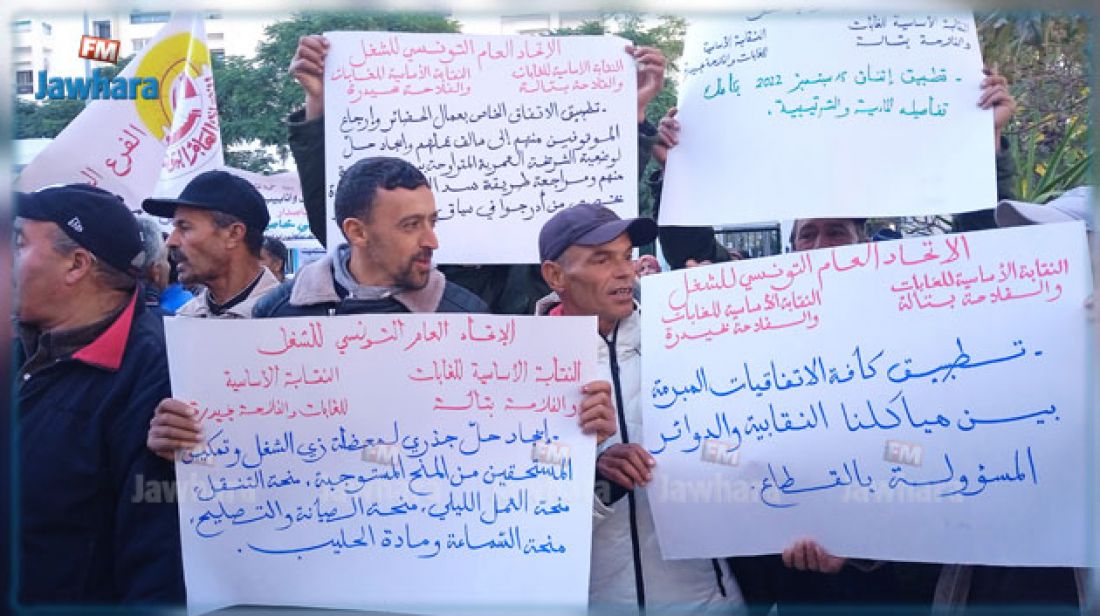 FM
Jawhara
الفرع
الاتحاد العام التونسي للشغل
النقابة الأساسية للغابات
والفلاحة بتالة
النقابة الأساسية للغابات
والفلاحة بحيدرة
- تطبيق الاتفاق الخاص بعمال الحضائر وارجاع
الموقوفين منهم إلى سالف عملهم وايجاد حلّ
لوضعية الشريحة العمرية المتراوحة
منهم ومراجعة طريقة
أدرجوا في
النقابة الأساسية للغابات
والفلاحة بتالة
النقابة الأساسية
للغابات والفلاحة بحيدرة
- تطبيق إتفاق 15 ديسمبر 2022 بكامل
تفاصيله المادية والترتيبية.
الإتحاد العام التونسي للشغل
النقابة الأساسية للغابات
والفلاحة بتالة
النقابة الأساسية
للغابات والفلاحة بحيدرة
- إيجاد حلّ جذري لمعضلة زي الشغل وتمكين
المستحقين من المنح المستوجبة، منحة التنقل،
منحة العمل الليلي، منحة الصيانة والتصليح،
منحة الشماعة ومادة الحليب.
الاتحاد العام التونسي للشغل
النقابة الأساسية للغابات
والفلاحة بتالة
النقابة الأساسية للغابات
والفلاحة بحيدرة
- تطبيق كافة الاتفاقيات المبرمة
بين هياكلنا النقابية والدوائر
المسؤولة بالقطاع.
FM
Jawhara
FM
Jawhara
FM
Jawhara